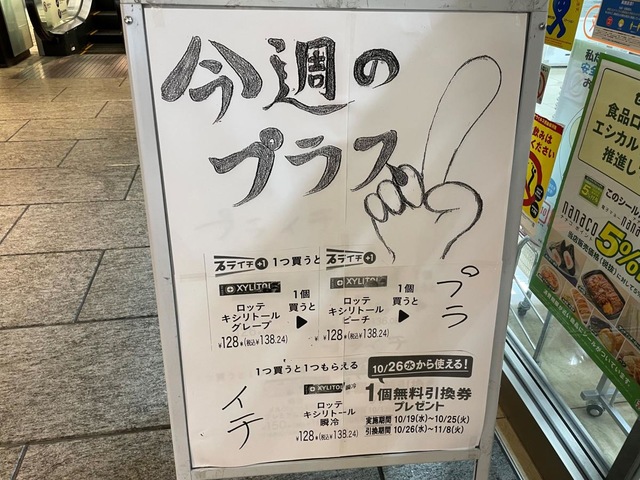 今週の
プラス
プライチ+1 1つ買うと プライチ+1
XYLITOL 1個 XYLITOL 1個
ロッテ 買うと ロッテ 買うと
キシリトール キシリトール
グレープ ピーチ
¥128(税込¥138.24) ¥128(税込¥138.24)
プラ
1つ買うと1つもらえる 10/26(水)から使える!
XYLITOL 1個無料引換券
ロッテ プレゼント
キシリトール 実施期間 10/19(水)~10/25(火)
瞬冷 引換期間 10/26(水)~11/8(火)
¥128(税込138.24)
イチ
食品ロ
エシカル
推進し
このシール
nanaco
5%